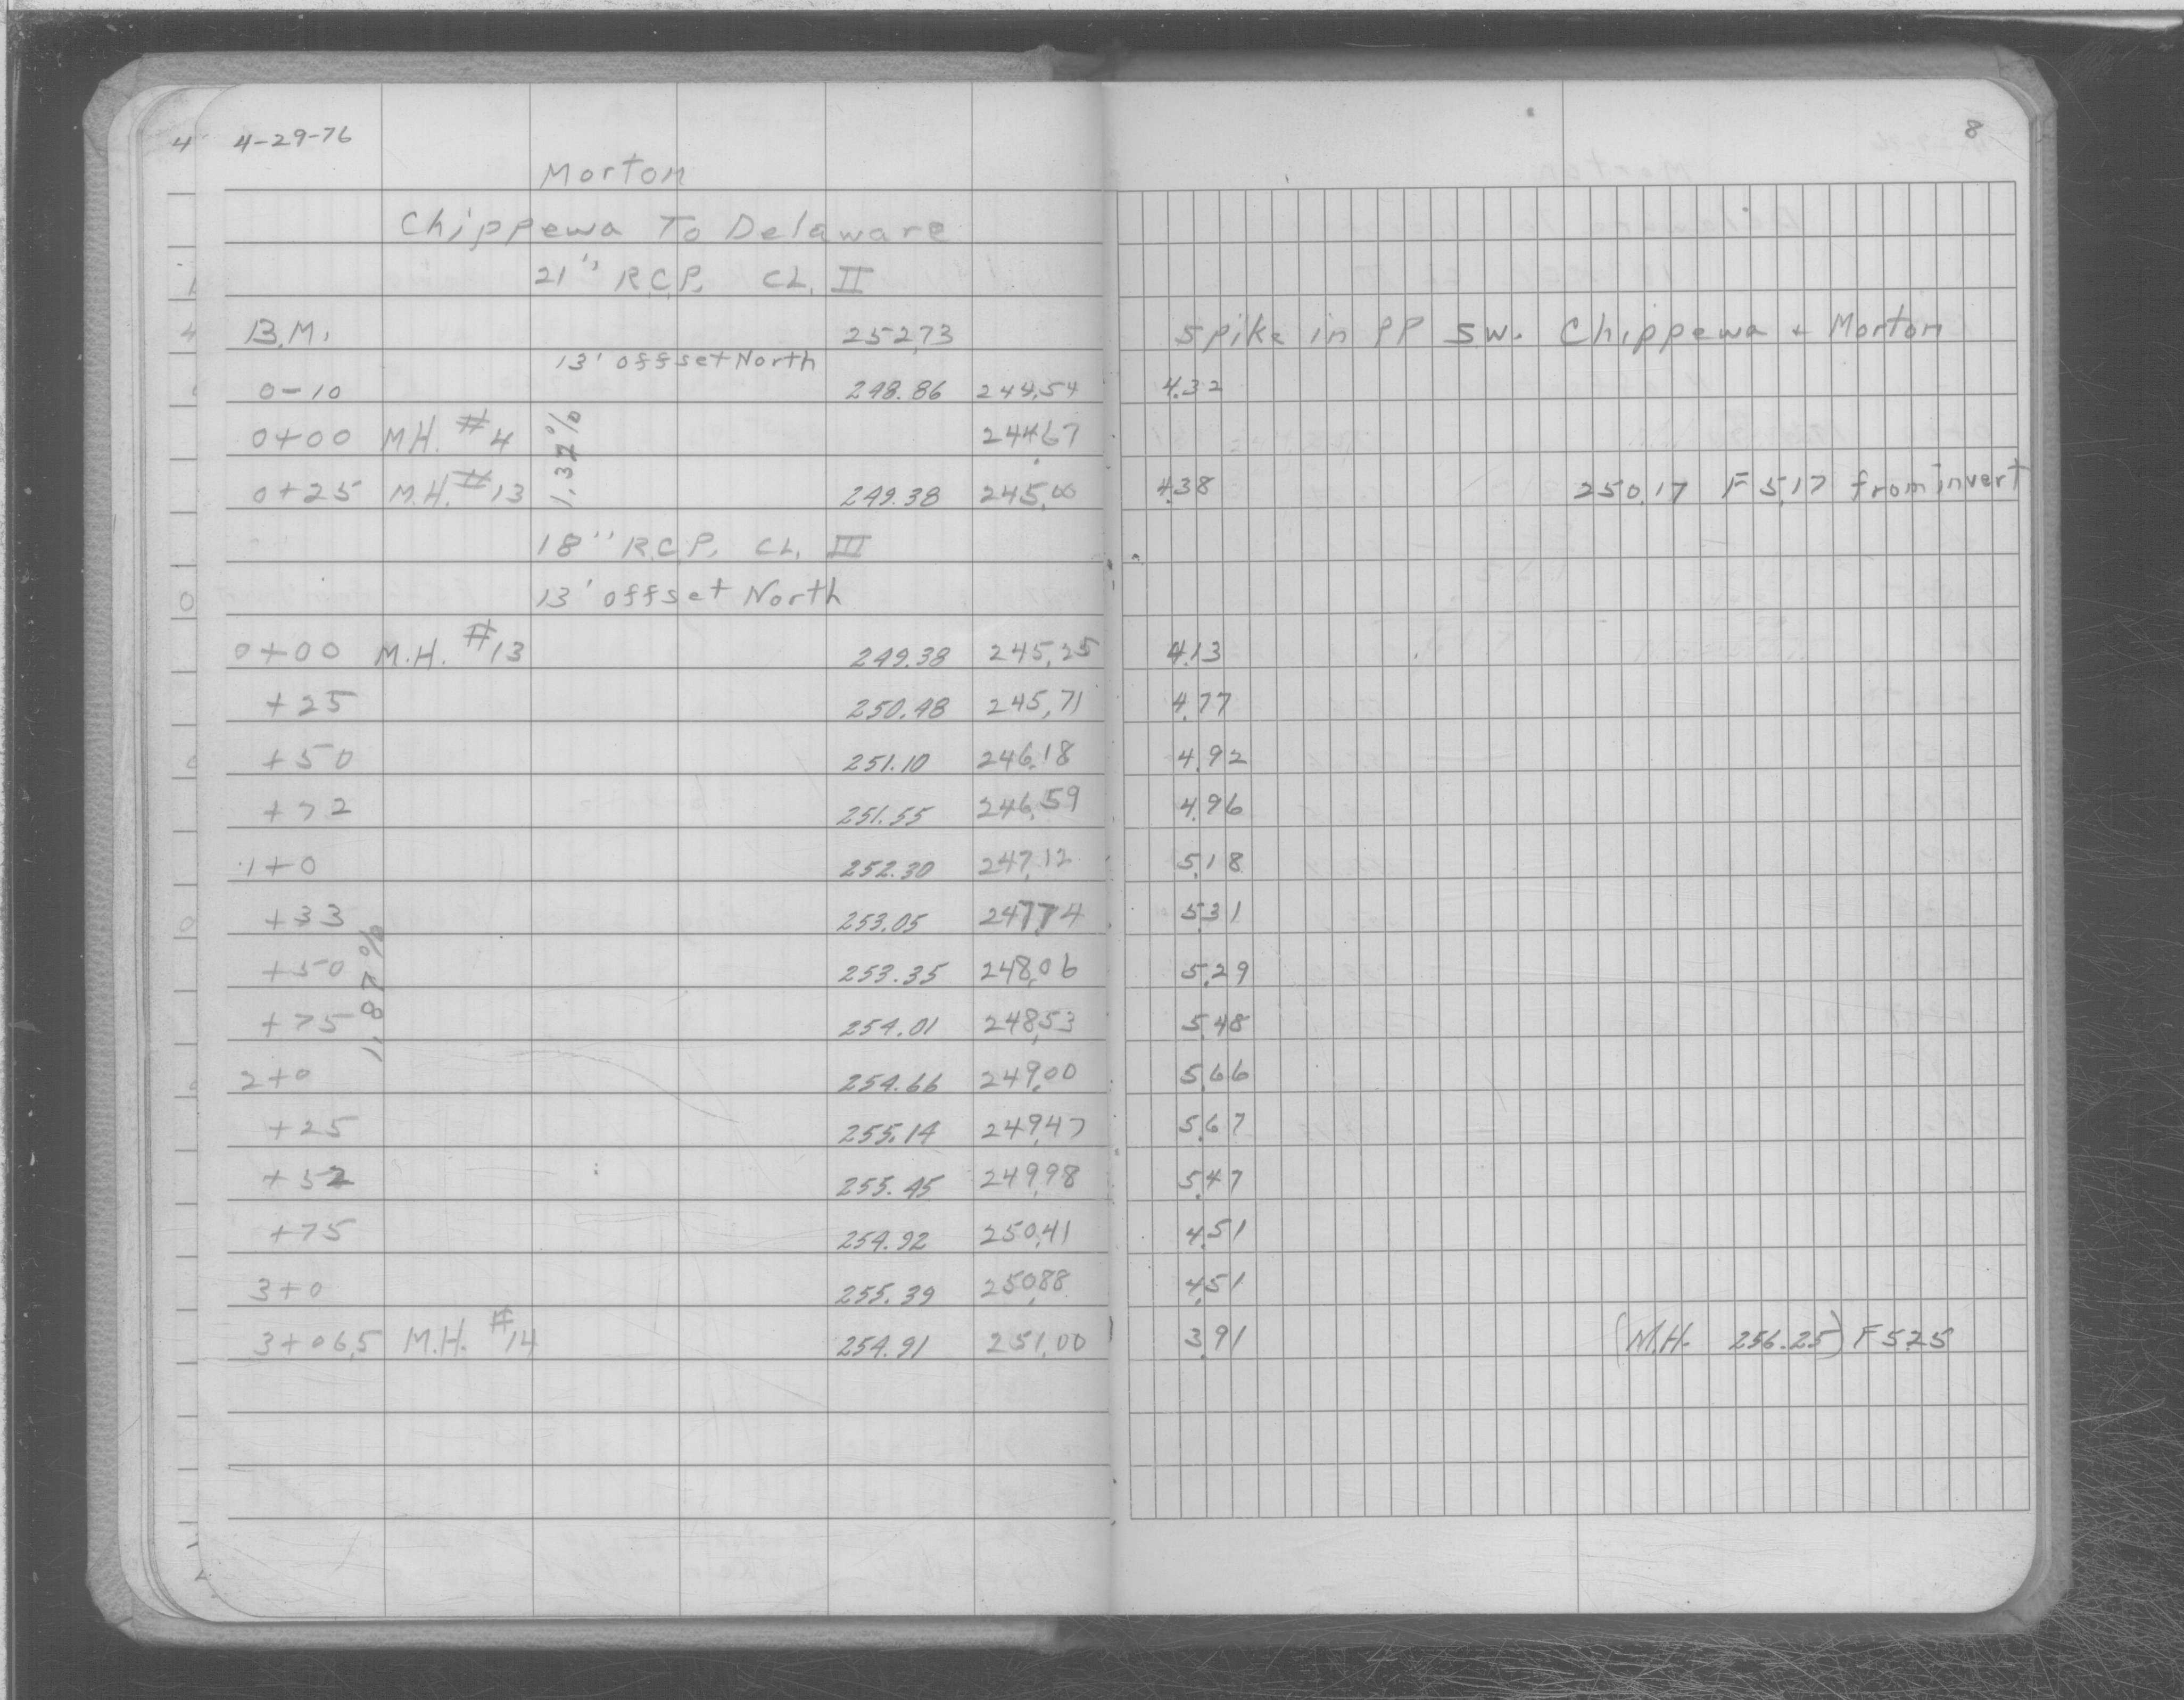 4-29-76
8
Morton
Chippewa To Delaware
21" R.C.P. CL. II
B.M. 252.73 Spike in PP SW. Chippewa + Morton
13' offset North
0-10 248.86 244.54 4.32
0+00 M.H. #4 244.67
1.32%
0+25 M.H. #13 249.38 245.00 4.38 250.17 F 5.17 from invert
18" R.C.P. CL. III
13' offset North
0+00 M.H. #13 249.38 245.25 4.13
+25 250.48 245.71 4.77
+50 251.10 246.18 4.92
+72 251.55 246.59 4.96
1+0 252.30 247.12 5.18
+33 253.05 247.74 5.31
+50 253.35 248.06 5.29
1.87%
+75 254.01 248.53 5.48
2+0 254.66 249.00 5.66
+25 255.14 249.47 5.67
+52 255.45 249.98 5.47
+75 254.92 250.41 4.51
3+0 255.39 250.88 4.51
3+06.5 M.H. #14 254.91 251.00 3.91 (M.H. 256.25) F 5.25